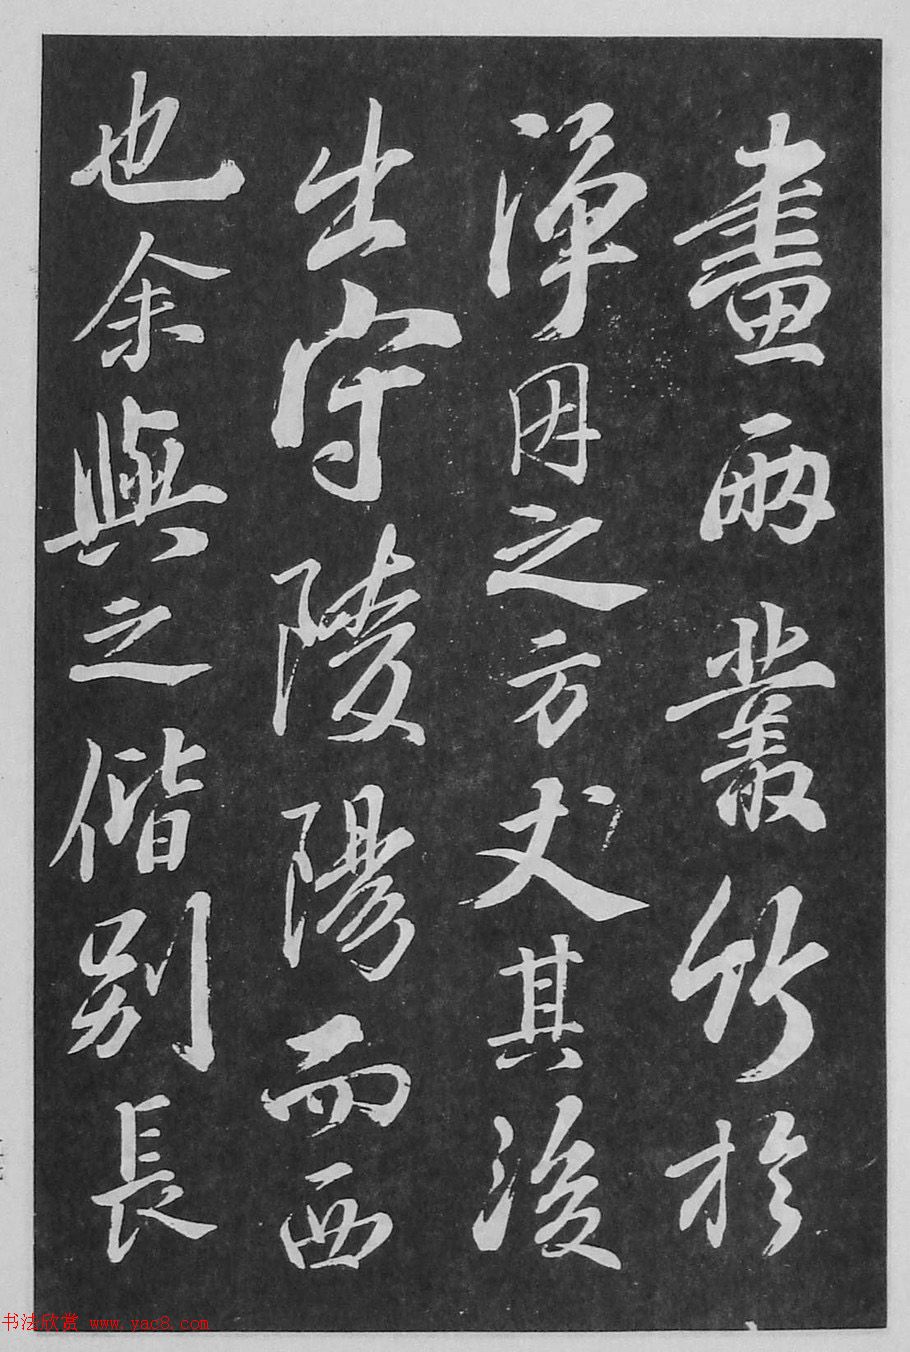 畫兩叢竹於
淨因之方丈其後
出守陵陽而西
也余與之偕別長
书法欣赏 www.yac8.com